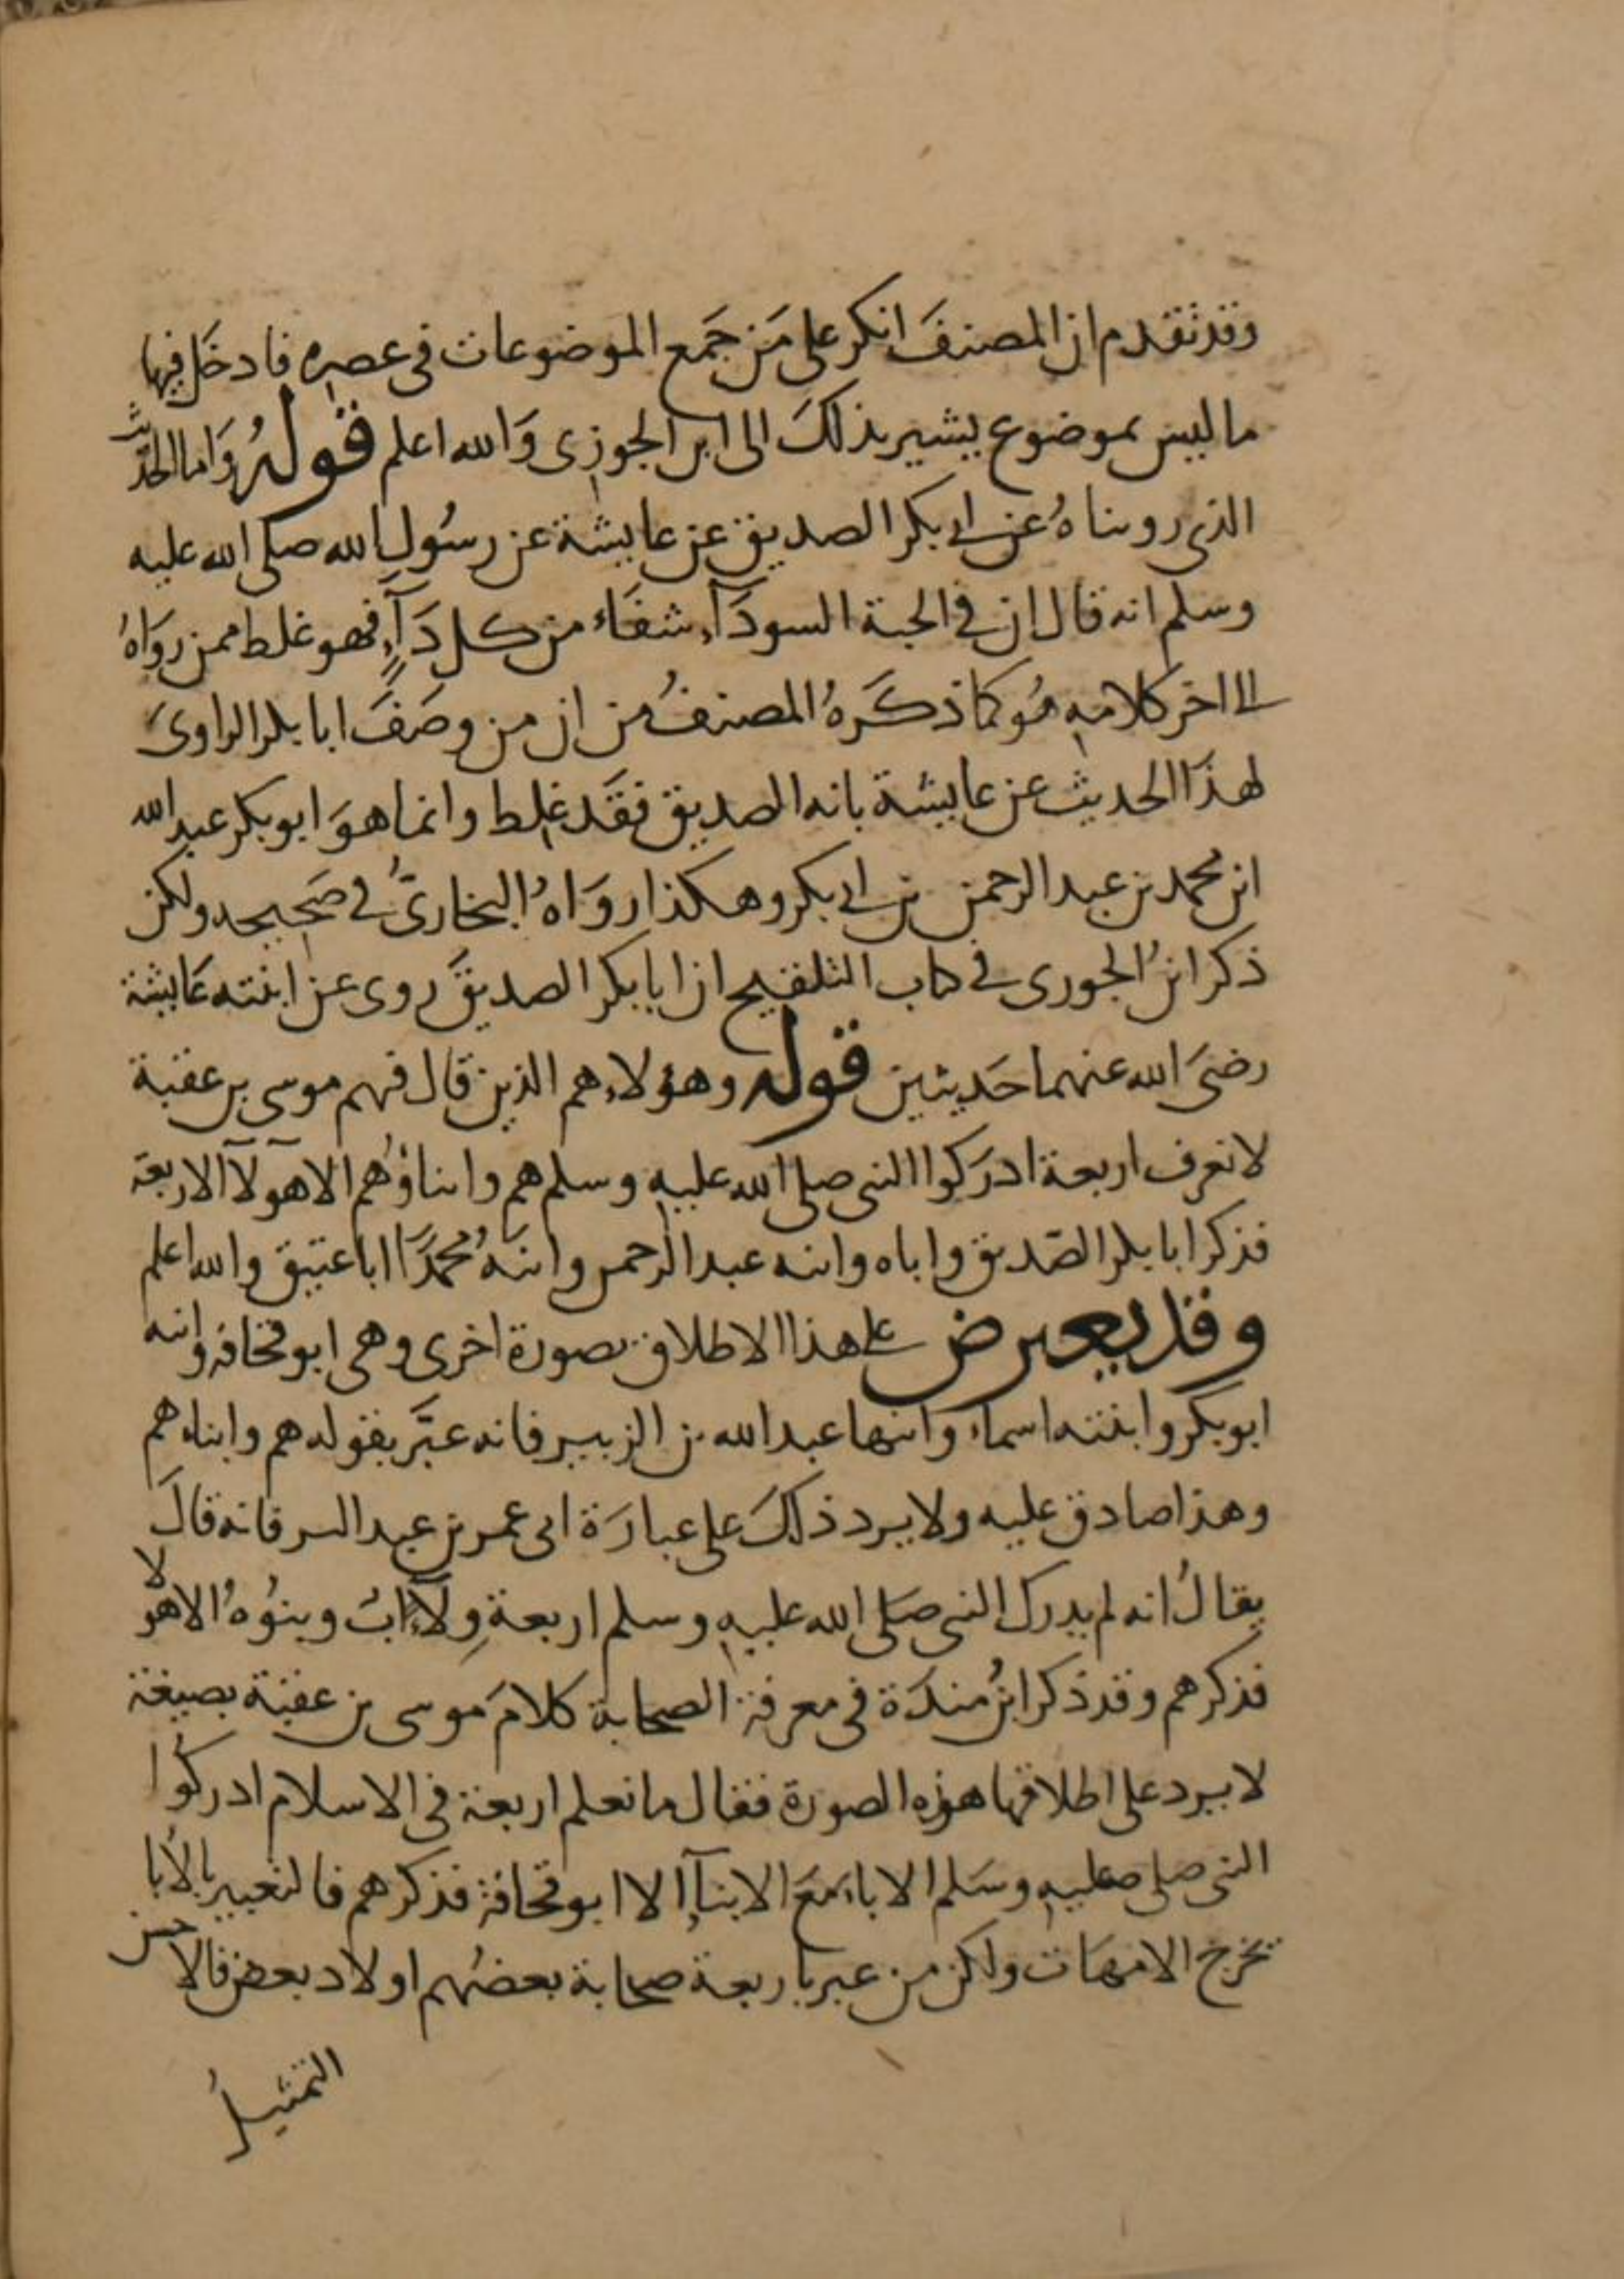 وقد تقدم ان المصنفَ انكر على مَن جَمع الموضوعات فى عصره فادخَل فيها
ما ليس بموضوع يشير بذلكَ الى ابن الجوزى وَالله اعلم قولهُ وَاما الحديث
الذى رويناهُ عن ابى بكر الصديق عن عايشة عن رسُول الله صلى الله عليه
وسلم انه قال ان فى الحبة السودآء شفَاء من كل دَآءٍ فهو غلط ممن روَاهُ
الى اخر كلامه هُو كما ذكَرهُ المصنفُ من ان من وصَفَ ابا بكر الراوىَ
لهذَا الحديث عن عايشة بانه الصديق فقَد غلط وانما هوَ ابو بكر عبد الله
ابن محمد بن عبد الرحمن بن ابى بكر وهكذا روَاهُ البخارىُّ فى صَحيحه ولكن
ذكر ابنُ الجوزى فى كتاب التلقيح ان ابا بكر الصديقَ روى عن ابنته عَايشة
رضىَ الله عنهما حَديثين قوله وهؤلاء هم الذين قال فيهم موسى بن عقبة
لا نعرف اربعة ادرَكوا النبى صلى الله عليه وسلم هم وابناؤُهم الا هَوَلآء الاربعة
فذكر ابا بكر الصّديق واباه وابنه عبد الرحمن وابنَهُ محمدًا ابا عتيق والله اعلم
وقد يعترض على هذا الاطلاق بصورة اخرى وهى ابو قحافه وابنه
ابو بكر وابنته اسماء وابنها عبد الله بن الزبير فانه عبَّر بقوله هم وابناءهم
وهذا صادق عليه ولا يرد ذلكَ على عبارَة ابى عمر بن عبد البر فانه قالَ
يقالُ انه لم يدرك النبى صَلى الله عليه وسلم اربعة وِلَآء ابٌ وبنُوُهُ الا هؤلا
فذكرهم وقد ذكر ابنُ مندَة فى معرفة الصحابة كلامَ موسى بن عقبة بصيغة
لا يرد على اطلاقها هذه الصورة فقال ما نعلم اربعة فى الاسلام ادركُوا
النبى صلى عليه وسَلم الاباء مَعَ الابنآء الا ابو قحافة فذكرهم فالتعبير بالابا
تخرج الامهَات ولكن من عبر باربعة صحابة بعضهُم اولاد بعض فالاحسن
التمثيلُ